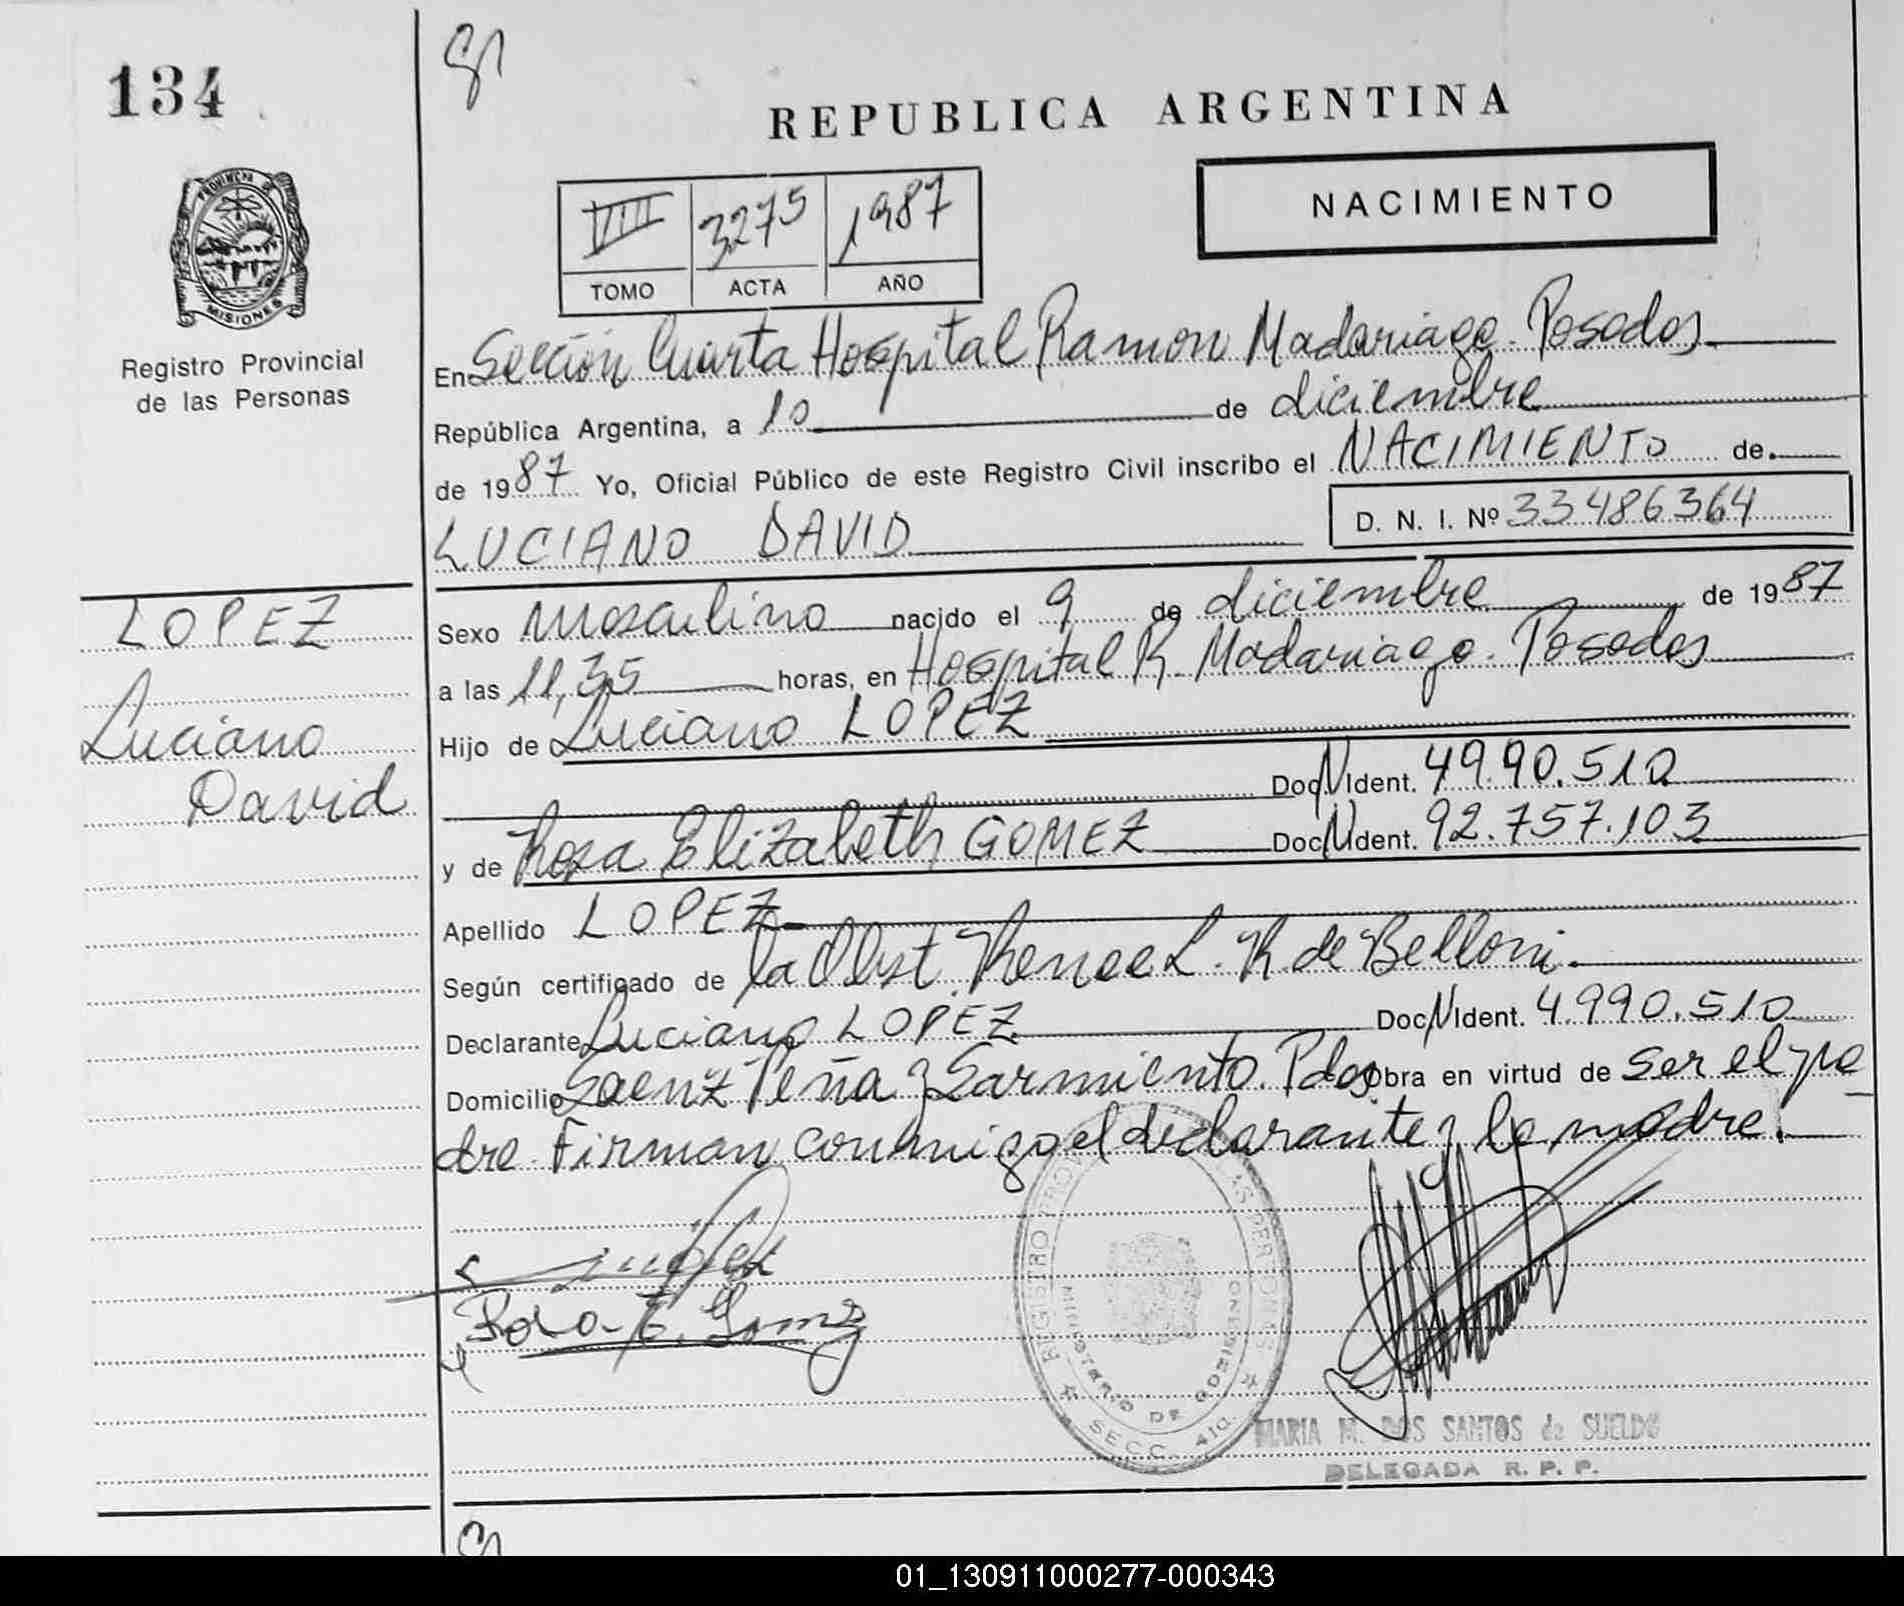 134
REPUBLICA ARGENTINA
NACIMIENTO
VIII 3275 1987
TOMO ACTA AÑO
PROVINCIA DE
MISIONES
Registro Provincial
de las Personas
En Sección Cuarta Hospital Ramon Madariaga. Posadas
República Argentina, a 10 de diciembre
de 1987 Yo, Oficial Público de este Registro Civil inscribo el NACIMIENTO de
LUCIANO DAVID D. N. I. Nº 33486364
LOPEZ
Luciano
David
Sexo Masculino nacido el 9 de diciembre de 1987
a las 11,35 horas, en Hospital R. Madariaga. Posadas
Hijo de Luciano LOPEZ
Doc N Ident. 49.90.510
y de Rosa Elizabeth GOMEZ Doc N Ident. 92.757.103
Apellido LOPEZ
Según certificado de la Obst. Renee L. R. de Belloni
Declarante Luciano LOPEZ Doc N Ident. 4.990.510
Domicilio Saenz Peña y Sarmiento. Pdas Obra en virtud de ser el pa
dre. Firman conmigo el declarante y la madre.
Rosa E. Gomez
REGISTRO PROV LAS PERSONAS
MINISTERIO DE GOBIERNO
SECC. 4ta.
MARIA M. DOS SANTOS de SUELDO
DELEGADA R. P. P.
01_130911000277-000343